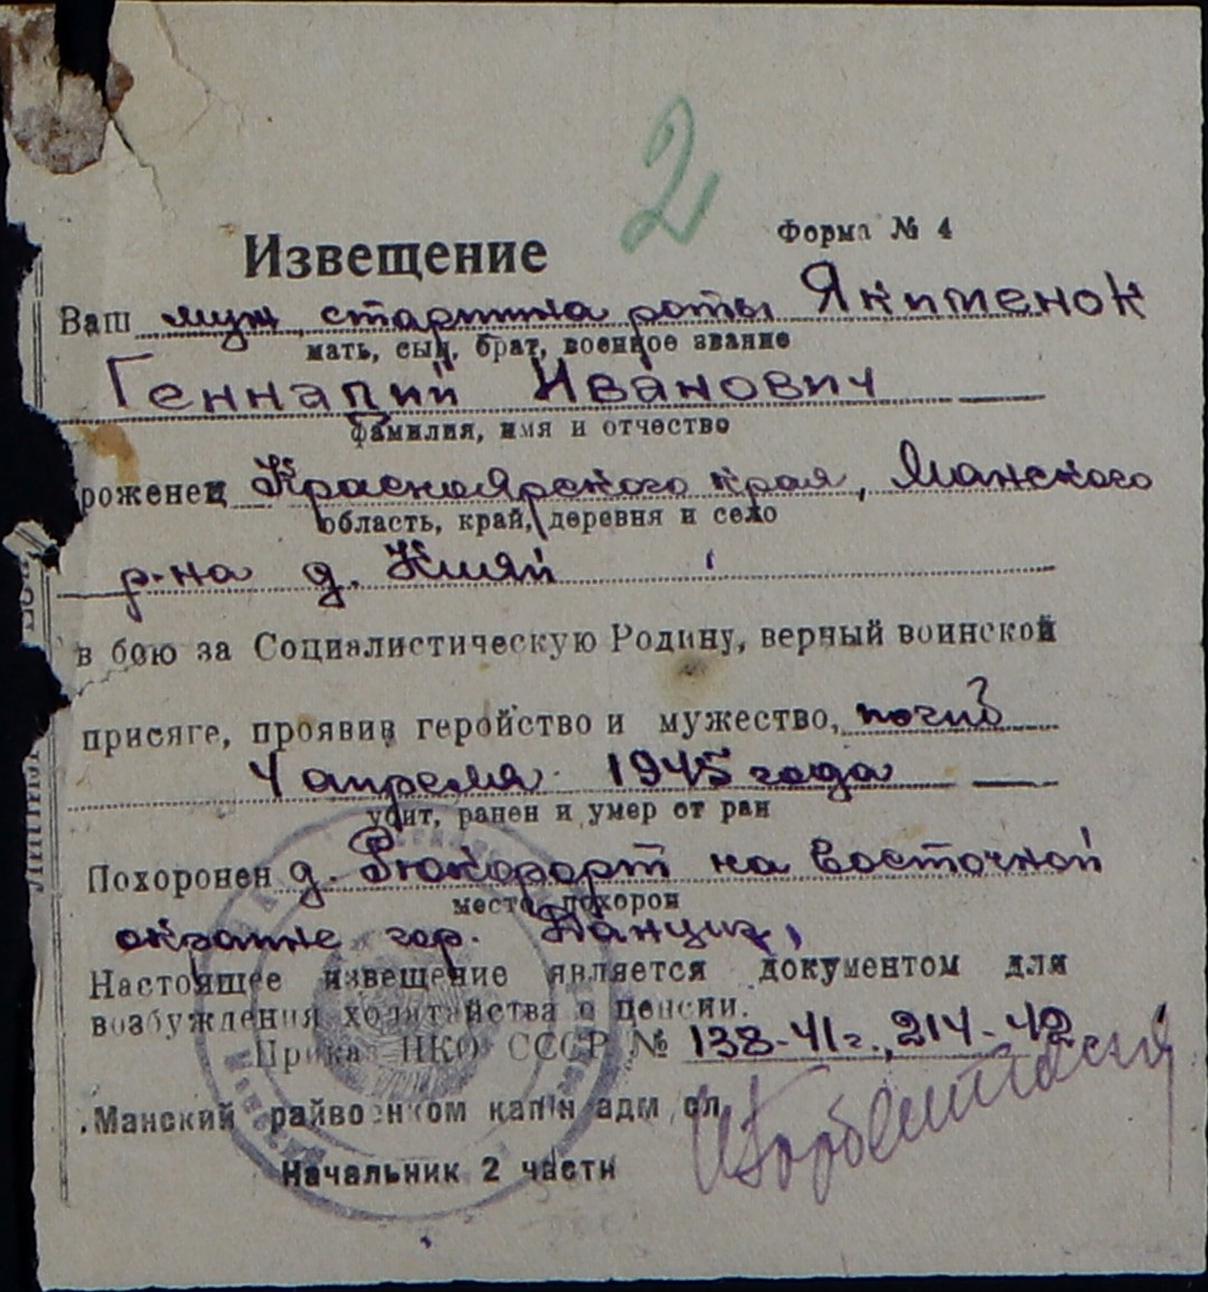 2
Форма № 4
Извещение
Ваш муж старшина роты Якименок
мать, сын, брат, военное звание
Геннадий Иванович
фамилия, имя и отчество
роженец Красноярского края, Манского
область, край, деревня и село
р-на д. Кияй
в бою за Социалистическую Родину, верный воинской
присяге, проявив геройство и мужество, погиб
4 апреля 1945 года
убит, ранен и умер от ран
Похоронен д. Рюкфорт на восточной
место похорон
окраине гор. Данциг,
Настоящее извещение является документом для
возбуждения ходатайства о пенсии.
Приказ НКО СССР № 138-41г., 214-42
Манский райвоенком кап-н адм сл
Начальник 2 части